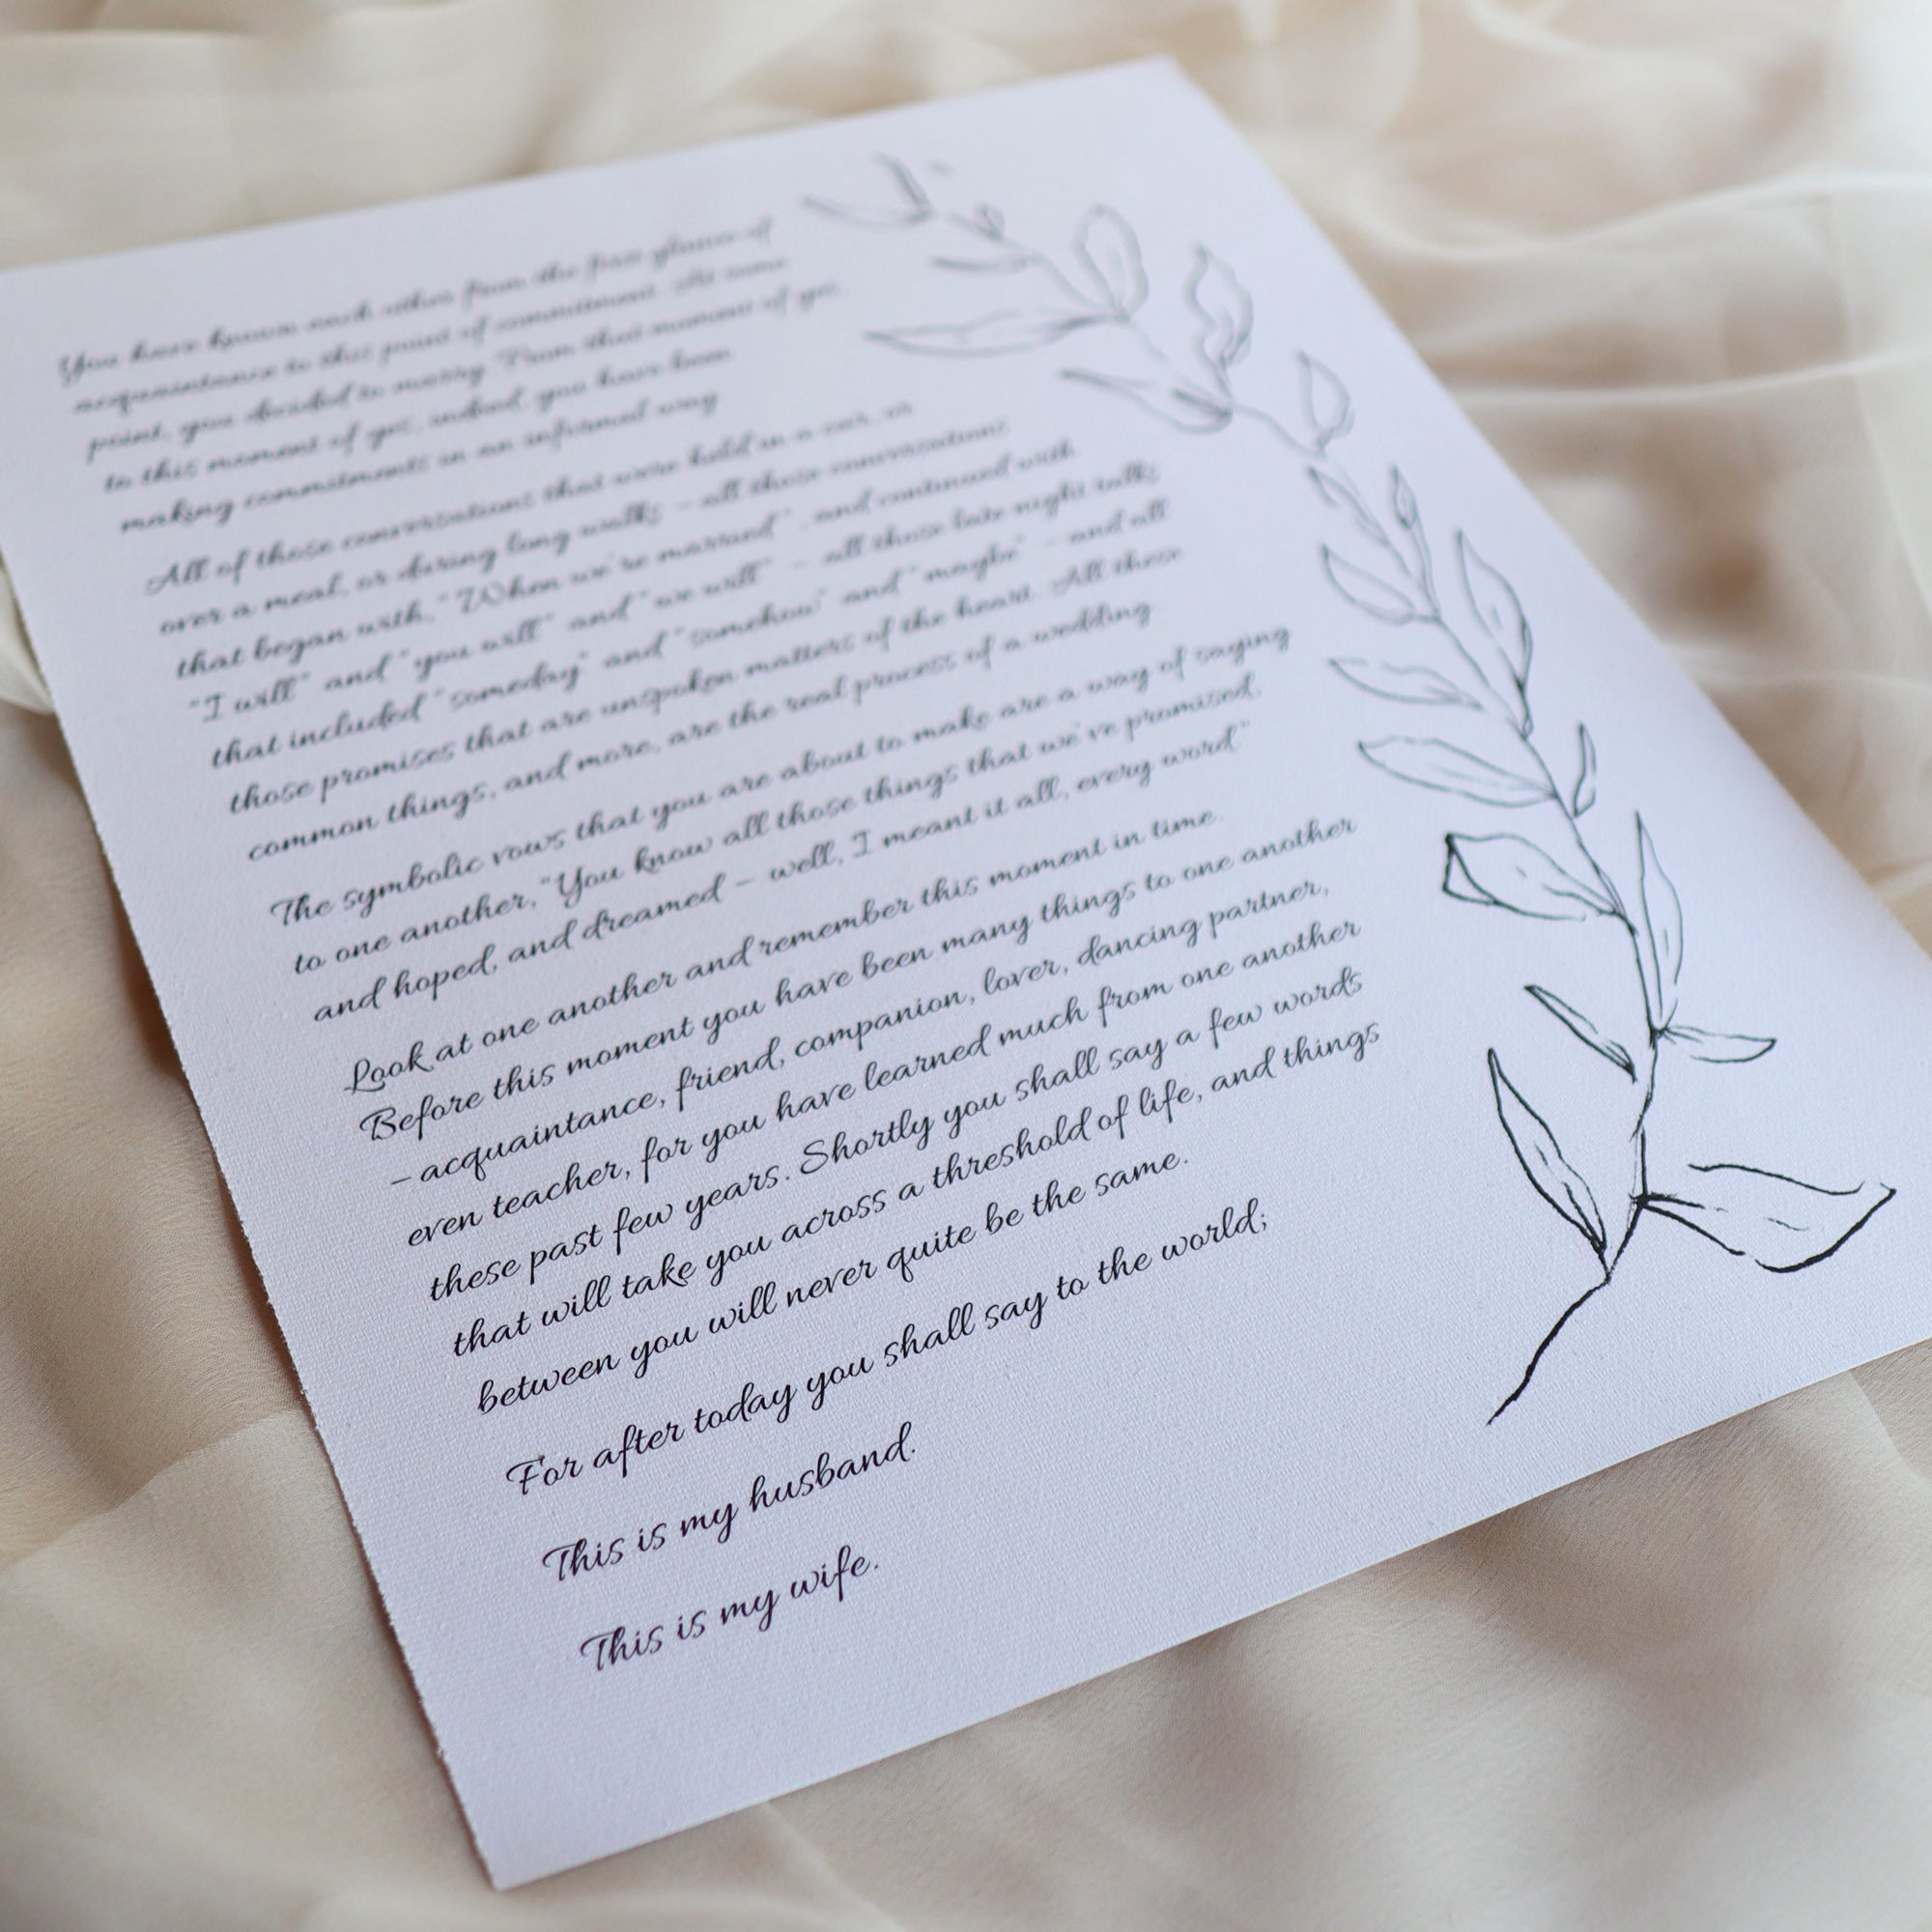 You have known each other from the first glance of
acquaintance to this point of commitment. At some
point, you decided to marry. From that moment of yes,
to this moment of yes, indeed, you have been
making commitments in an informal way.
All of those conversations that were held in a car, or
over a meal, or during long walks – all those conversations
that began with, “When we’re married”, and continued with
“I will” and “you will” and “we will” – all those late night talks
that included “someday” and “somehow” and “maybe” – and all
those promises that are unspoken matters of the heart. All these
common things, and more, are the real process of a wedding.
The symbolic vows that you are about to make are a way of saying
to one another, “You know all those things that we’ve promised,
and hoped, and dreamed – well, I meant it all, every word.”
Look at one another and remember this moment in time.
Before this moment you have been many things to one another
– acquaintance, friend, companion, lover, dancing partner,
even teacher, for you have learned much from one another
these past few years. Shortly you shall say a few words
that will take you across a threshold of life, and things
between you will never quite be the same.
For after today you shall say to the world;
This is my husband.
This is my wife.